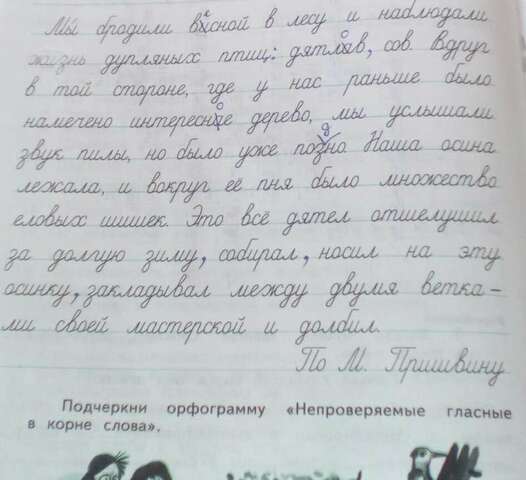 Мы бродили весной в лесу и наблюдали
жизнь дупляных птиц: дятлов, сов. Вдруг
в той стороне, где у нас раньше было
намечено интересное дерево, мы услышали
звук пилы, но было уже поздно Наша осина
лежала, и вокруг её пня было множество
еловых шишек. Это всё дятел отшелушил
за долгую зиму, собирал, носил на эту
осинку, закладывал между двумя ветка-
ми своей мастерской и долбил.
По М. Пришвину
Подчеркни орфограмму «Непроверяемые гласные
в корне слова».